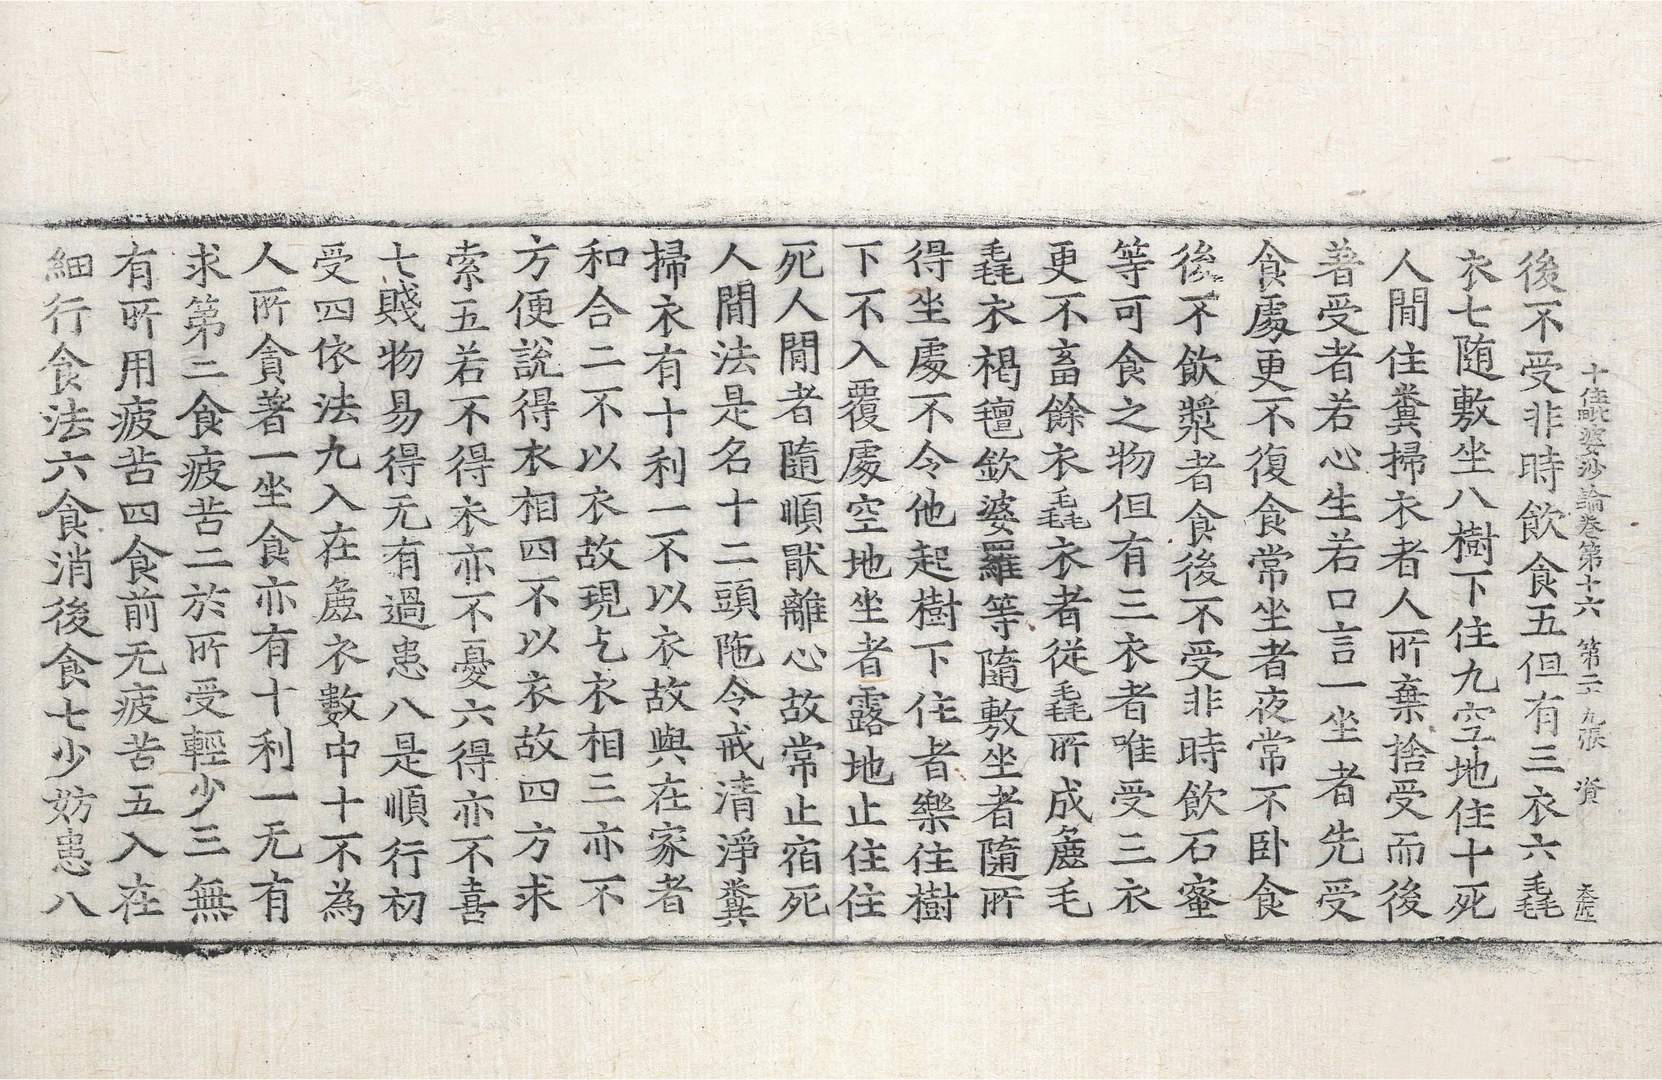 十住毗婆沙論卷第十六 第二九張 資
後不受非時飲食五但有三衣六毳
衣七随敷坐八樹下住九空地住十死
人間住糞掃衣者人所棄捨受而後
著受者若心生若口言一坐者先受
食處更不復食常坐者夜常不卧食
後不飲漿者食後不受非時飲石蜜
等可食之物但有三衣者唯受三衣
更不畜餘衣毳衣者從毳所成麁毛
毳衣褐氊欽婆羅等隨敷坐者隨所
得坐處不令他起樹下住者樂住樹
下不入覆處空地坐者露地止住住
死人間者隨順猒離心故常止宿死
人間法是名十二頭陁令戒清淨糞
掃衣有十利一不以衣故與在家者
和合二不以衣故現乞衣相三亦不
方便說得衣相四不以衣故四方求
索五若不得衣亦不憂六得亦不喜
七賤物易得无有過患八是順行初
受四依法九入在麁衣數中十不為
人所貪著一坐食亦有十利一无有
求第二食疲苦二於所受輕少三無
有所用疲苦四食前无疲苦五入在
細行食法六食消後食七少妨患八